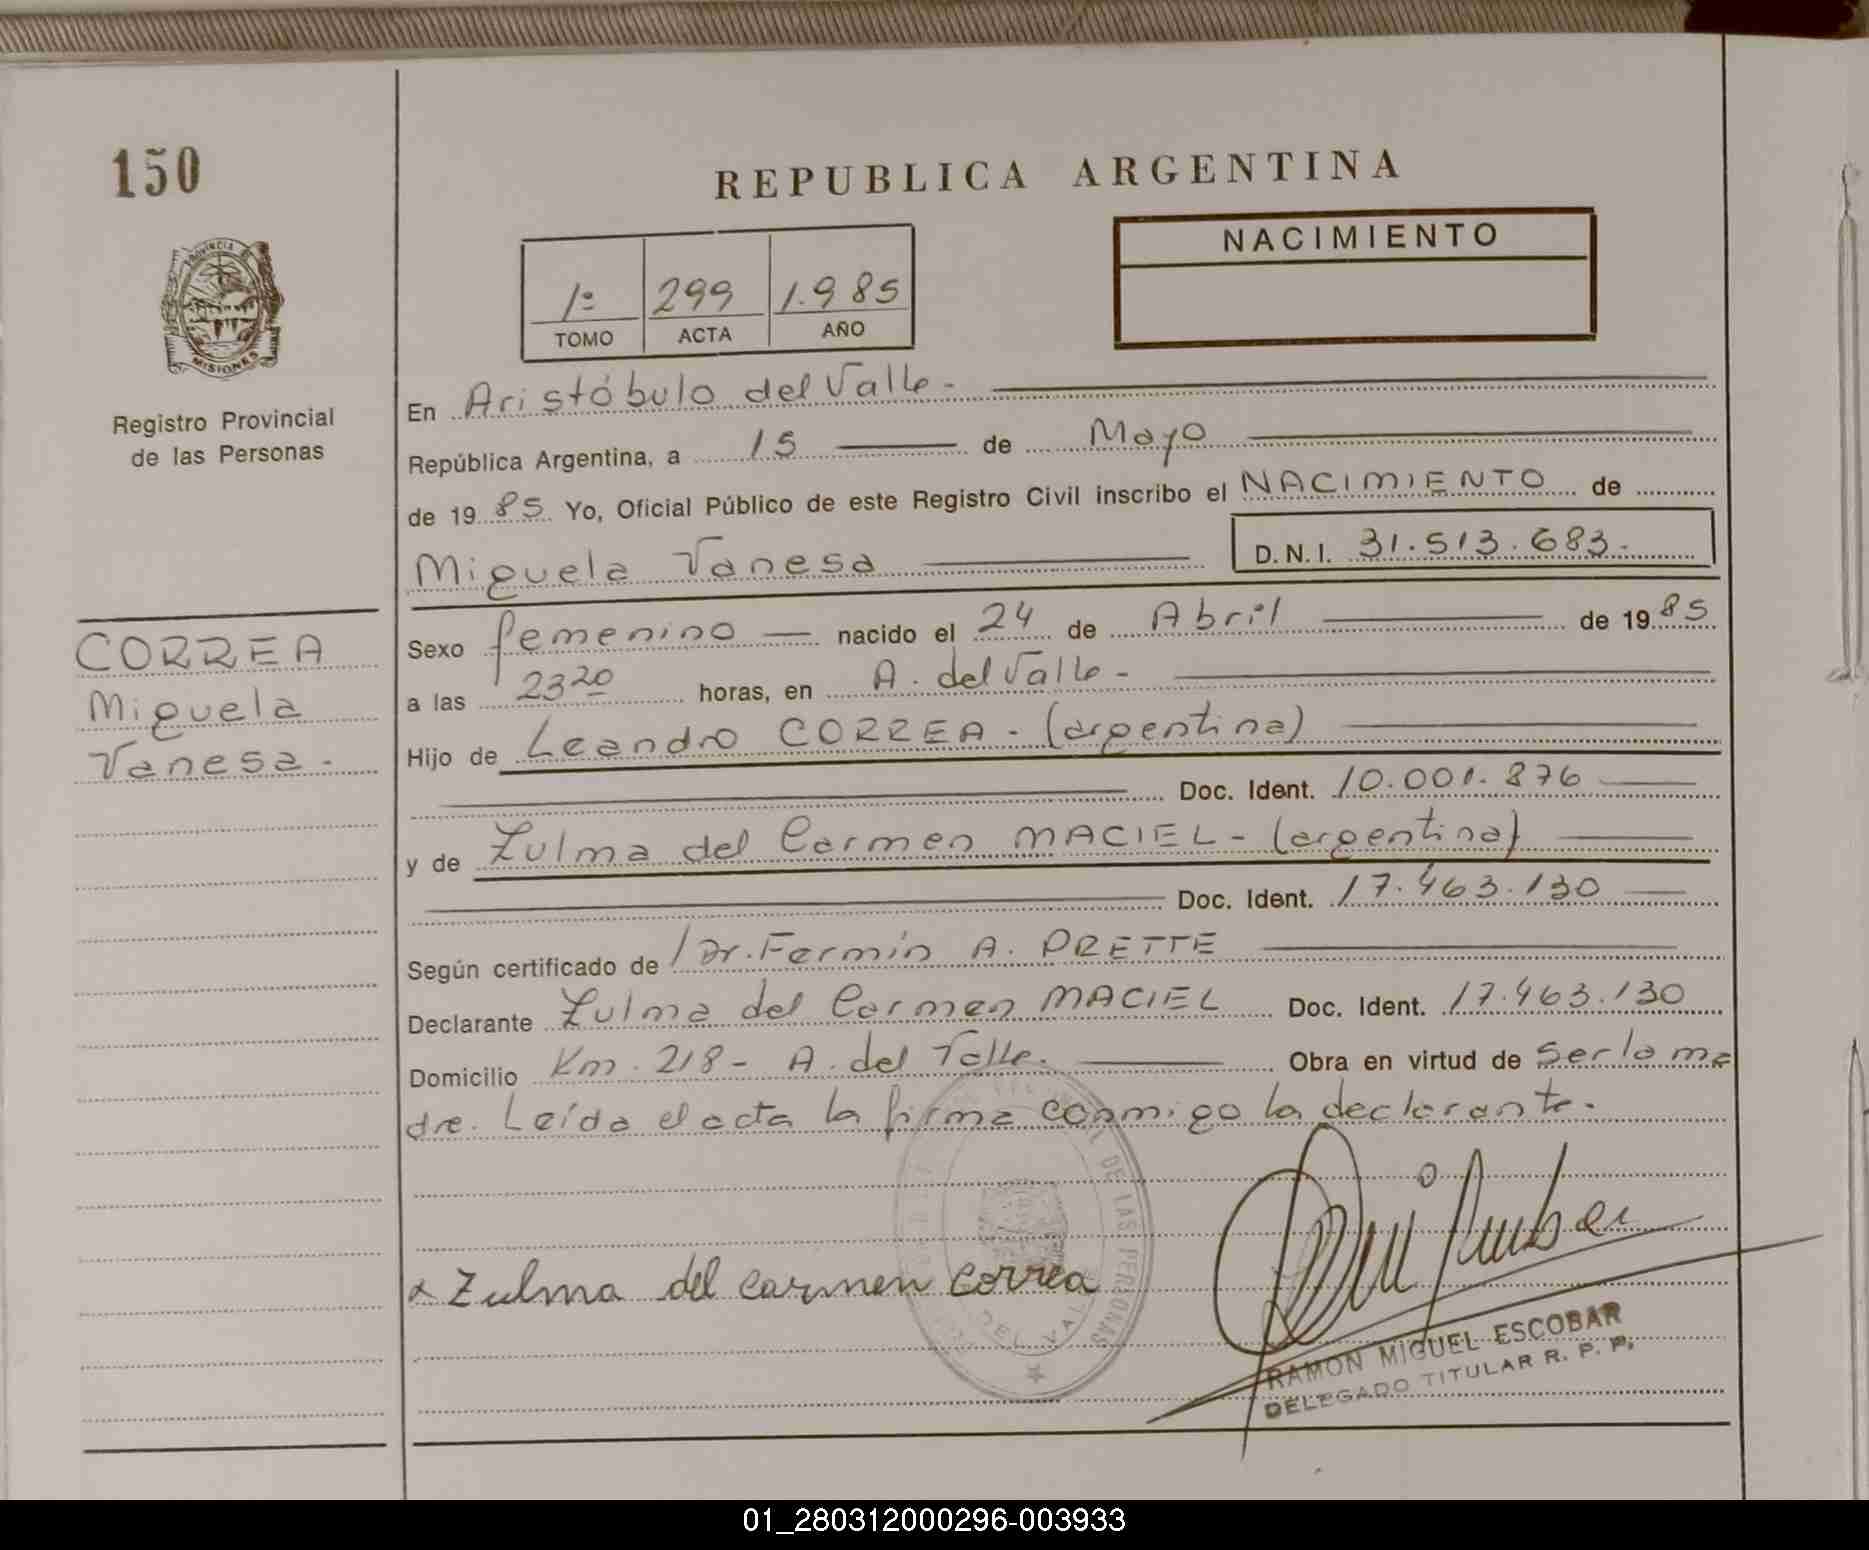 150
REPUBLICA ARGENTINA
PROVINCIA DE
MISIONES
Registro Provincial
de las Personas
NACIMIENTO
1º 299 1.985
TOMO ACTA AÑO
En Aristóbulo del Valle.-
República Argentina, a 15 de Mayo
de 1985 Yo, Oficial Público de este Registro Civil inscribo el NACIMIENTO de
Miguela Vanesa D.N.I. 31.513.683.
CORREA
Miguela
Vanesa.-
Sexo femenino nacido el 24 de Abril de 1985
a las 23 20 horas, en A. del Valle-
Hijo de Leandro CORREA - (argentina)
Doc. Ident. 10.001.876
y de Zulma del Carmen MACIEL - (argentina)
Doc. Ident. 17.463.130
Según certificado de Dr. Fermín A. PRETTE
Declarante Zulma del Carmen MACIEL Doc. Ident. 17.463.130
Domicilio Km. 218- A. del Valle. Obra en virtud de ser la ma
dre. Leída el acta la firma conmigo la declarante.
DE LAS PERSONAS
DEL VALLE
x Zulma del carmen correa
RAMON MIGUEL ESCOBAR
DELEGADO TITULAR R. P. P.
01_280312000296-003933